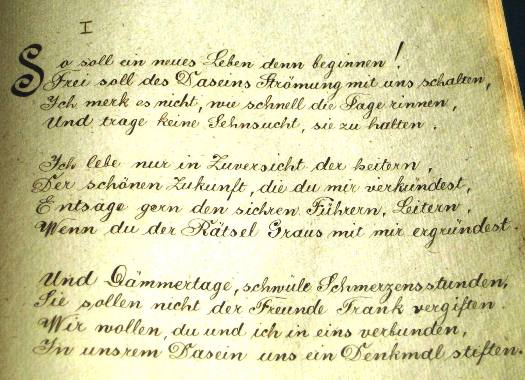 I
So soll ein neues Leben denn beginnen!
Frei soll des Daseins Strömung mit uns schalten,
Ich merk es nicht, wie schnell die Tage rinnen,
Und trage keine Sehnsucht, sie zu halten.
Ich lebe nur in Zuversicht der heitern,
Der schönen Zukunft, die du mir verkündest,
Entsage gern den sichren Führern, Leitern,
Wenn du der Rätsel Graus mit mir ergründest.
Und Dämmertage, schwüle Schmerzensstunden,
Sie sollen nicht der Freunde Trank vergiften.
Wir wollen, du und ich in eins verbunden,
In unsrem Dasein uns ein Denkmal stiften.